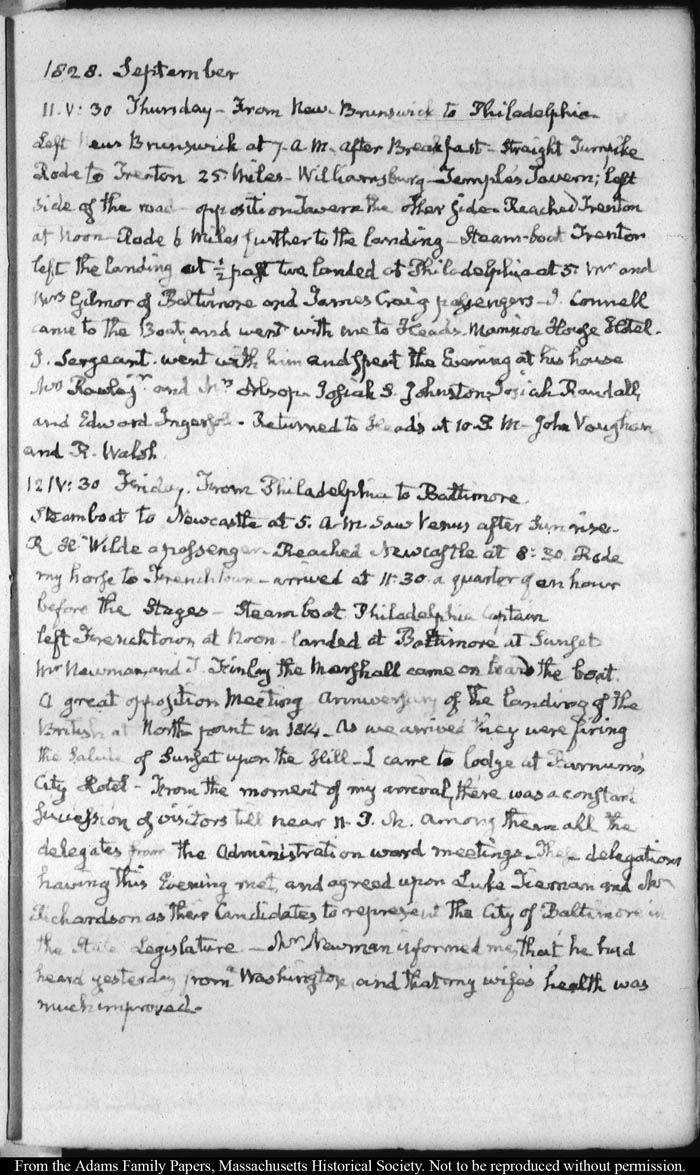 1828. September
11. V: 30 Thursday - From New Brunswick to Philadelphia.
Left New Brunswick at 7. A.M. after Breakfast - Straight Turnpike
Rode to Trenton 25 Miles - Williamsburg - Temple's Tavern; left
side of the road - opposition Tavern the other side - Reached Trenton
at Noon - Rode 6 miles further to the landing - Steam-boat Trenton
left the landing at ½ past two, landed at Philadelphia at 5. Mr and
Mrs Gilmor of Baltimore and James Craig passengers - J. Connell
came to the Boat, and went with me to Heads. Mansion House Hotel.
J. Sergeant. went with him and spent the Evening at his house
Mr Rawle, and Mr Alsop. Josiah S. Johnston, Josiah Randall,
and Edward Ingersoll - Returned to Heads at 10. P.M. John Vaughan
and R. Walsh.
12 IV: 30 Friday. From Philadelphia to Baltimore.
Steamboat to Newcastle at 5. A.M. Saw Venus after Sun rise.
R H Wilde a passenger - Reached Newcastle at 8:30. Rode
my horse to Frenchtown - arrived at 11:30. a quarter of an hour
before the Stages - Steam boat Philadelphia Captain
left Frenchtown at Noon - landed at Baltimore at Sunset
Mr Newman, and T. Finlay the Marshall came on board the boat.
A great opposition Meeting anniversary of the landing of the
British at North point in 1814 - As we arrived they were firing
the Salute of Sunset upon the Hill - I came to lodge at Barnum's
City Hotel - From the moment of my arrival, there was a constant
Succession of visitors till near 11. P.M. among them all the
delegates from the Administration ward meetings - These delegations
having this Evening met, and agreed upon Luke Tiernan and Mr
Richardson as their Candidates to represent the City of Baltimore in
the State Legislature - Mr Newman informed me, that he had
heard yesterday from Washington, and that my wife's health was
much improved.
From the Adams Family Papers, Massachusetts Historical Society. Not to be reproduced without permission